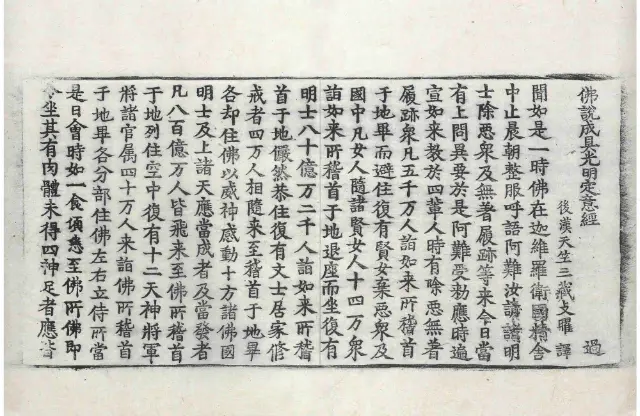 佛說成具光明定意經 過
後漢天竺三藏支曜 譯
聞如是一時佛在迦維羅衛國精舍
中止晨朝整服呼語阿難汝請諸明
士除惡衆及無著履跡等来今日當
有上問異要於是阿難受勑應時遍
宣如来教於四輩人時有除惡無著
履跡衆凡五千万人詣如来所稽首
于地畢而避住復有賢女棄惡衆及
國中凡女人隨諸賢女人十四万衆
詣如来所稽首于地退座而坐復有
明士八十億万二千人詣如来所稽
首于地儼然恭住復有文士居家脩
戒者四万人相隨来至稽首于地畢
各却住佛以威神感動十方諸佛國
明士及上諸天應當成者及當發者
凡八百億万人皆飛来至佛所稽首
于地列住空中復有十二天神將軍
將諸官属四十万人来詣佛所稽首
于地畢各分部住佛左右立侍所當
是日會時如一食頃悉至佛所佛即
令坐其有肉體未得四神足者應皆